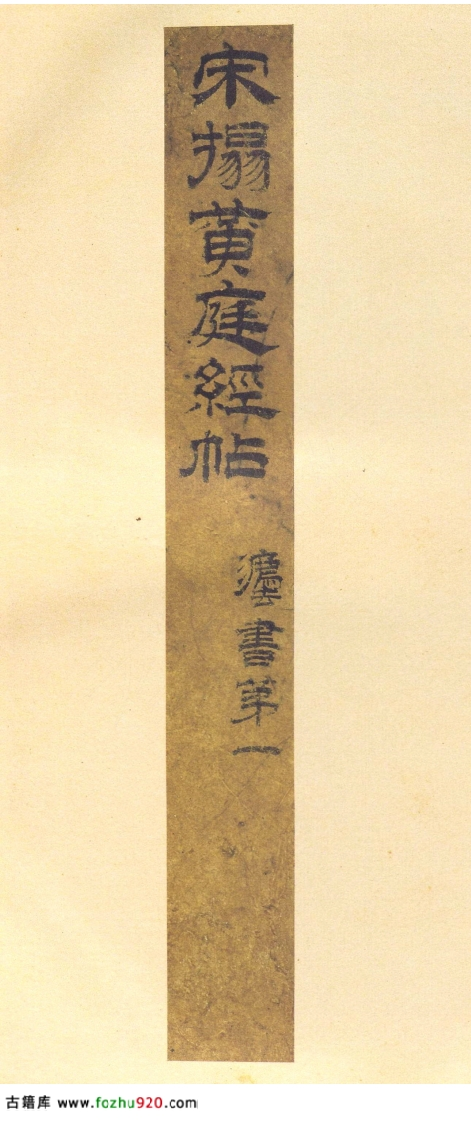 宋搨黃庭經帖
灋書第一
古籍库 www.fozhu920.com